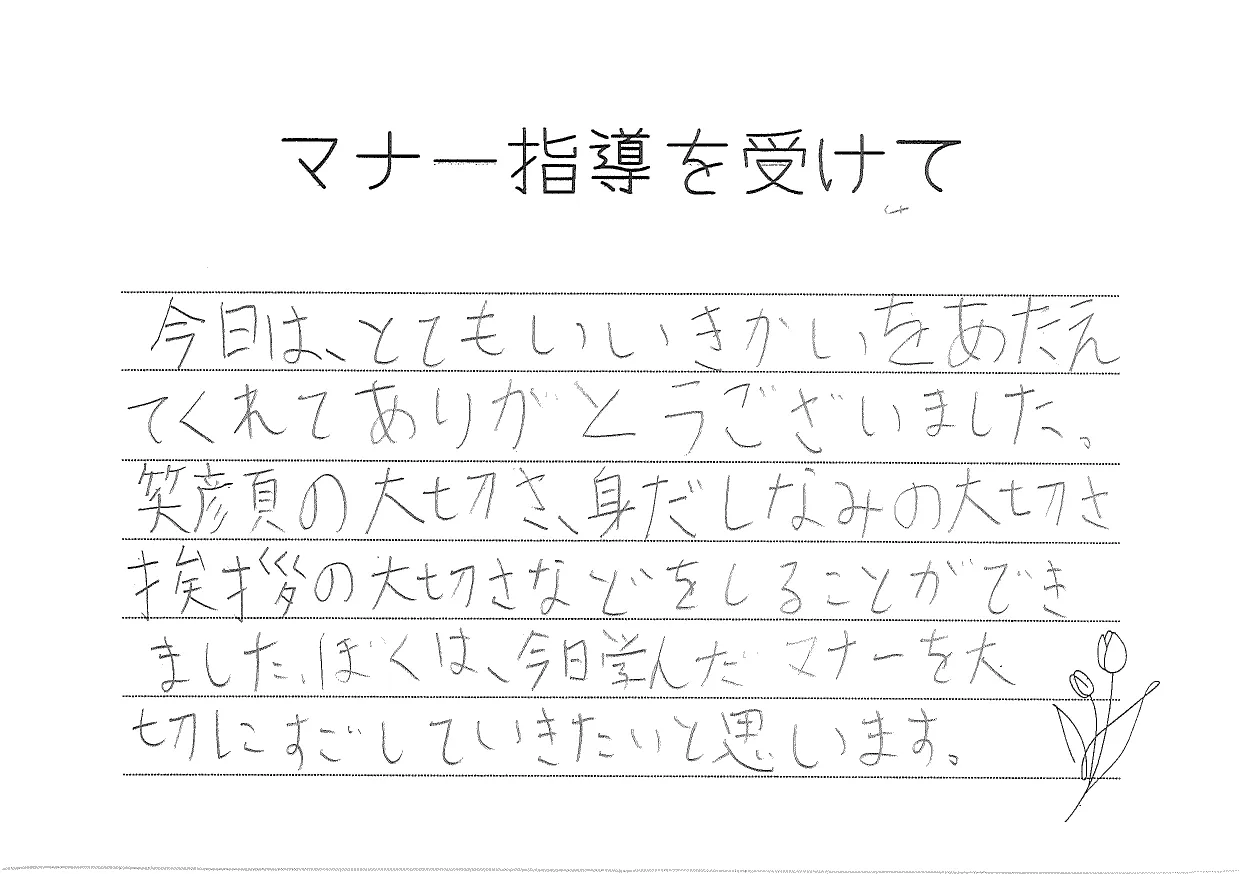 マナー指導を受けて
今日は、とてもいいきかいをあたえ
てくれてありがとうございました。
笑顔の大切さ、身だしなみの大切さ
挨拶の大切さなどをしることができ
ました。ぼくは、今日学んだマナーを大
切にすごしていきたいと思います。